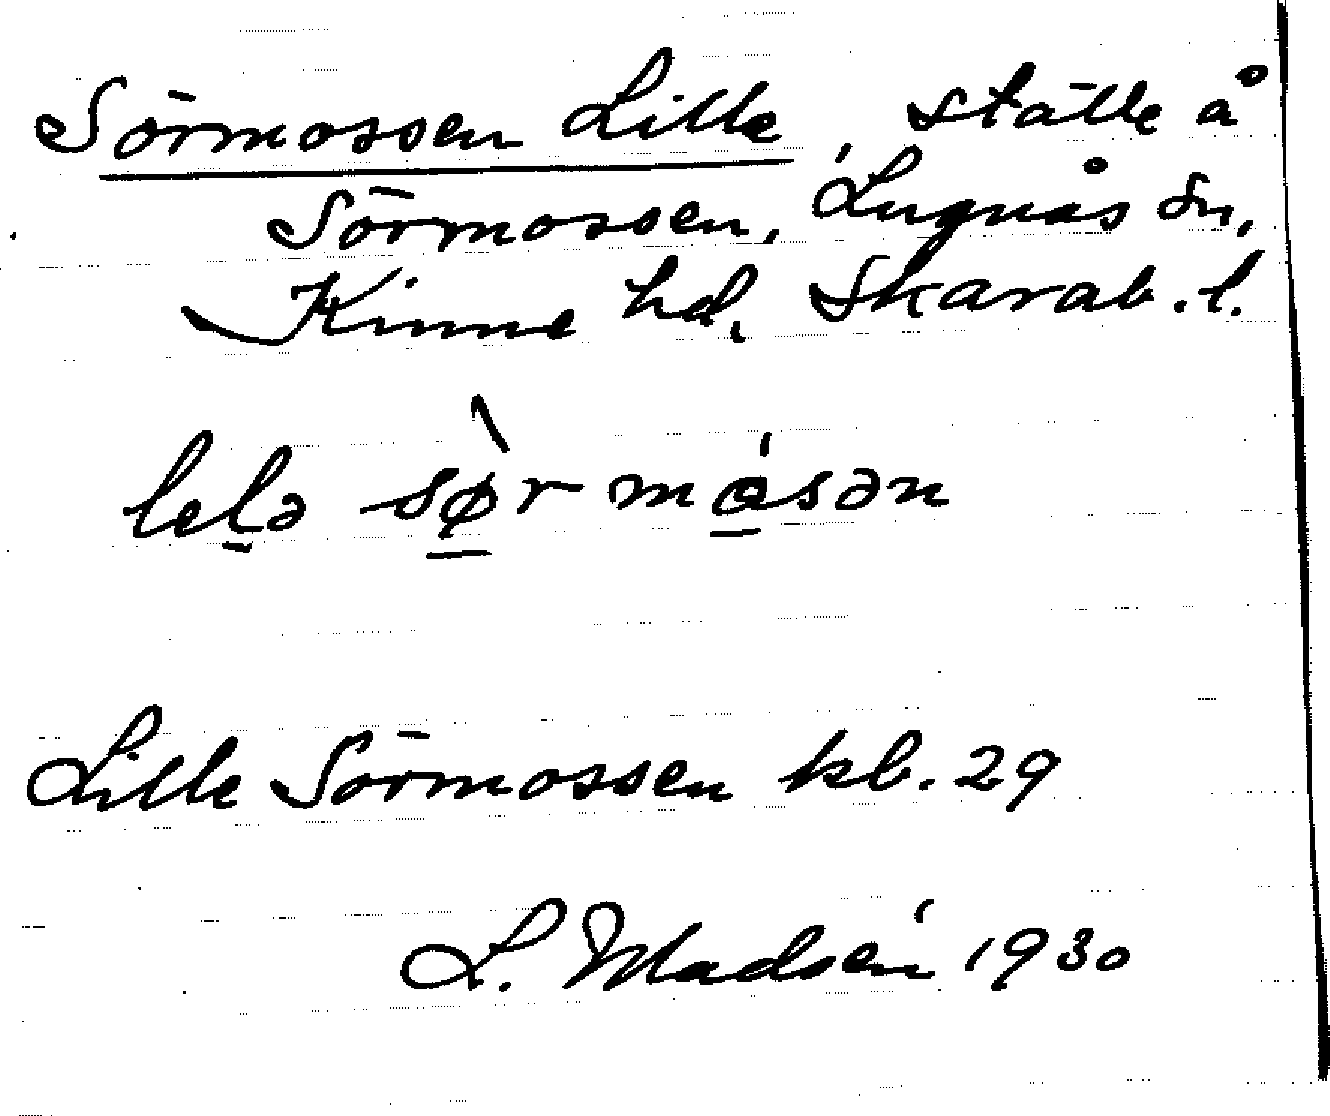 Sörmossen Lille ställe å
Sörmossen, Lugnås sn,
Kinne hd, Skarab. l.
lelə sø̀rmósən
Lille Sörmossen kb. 29
L. Madsén 1930